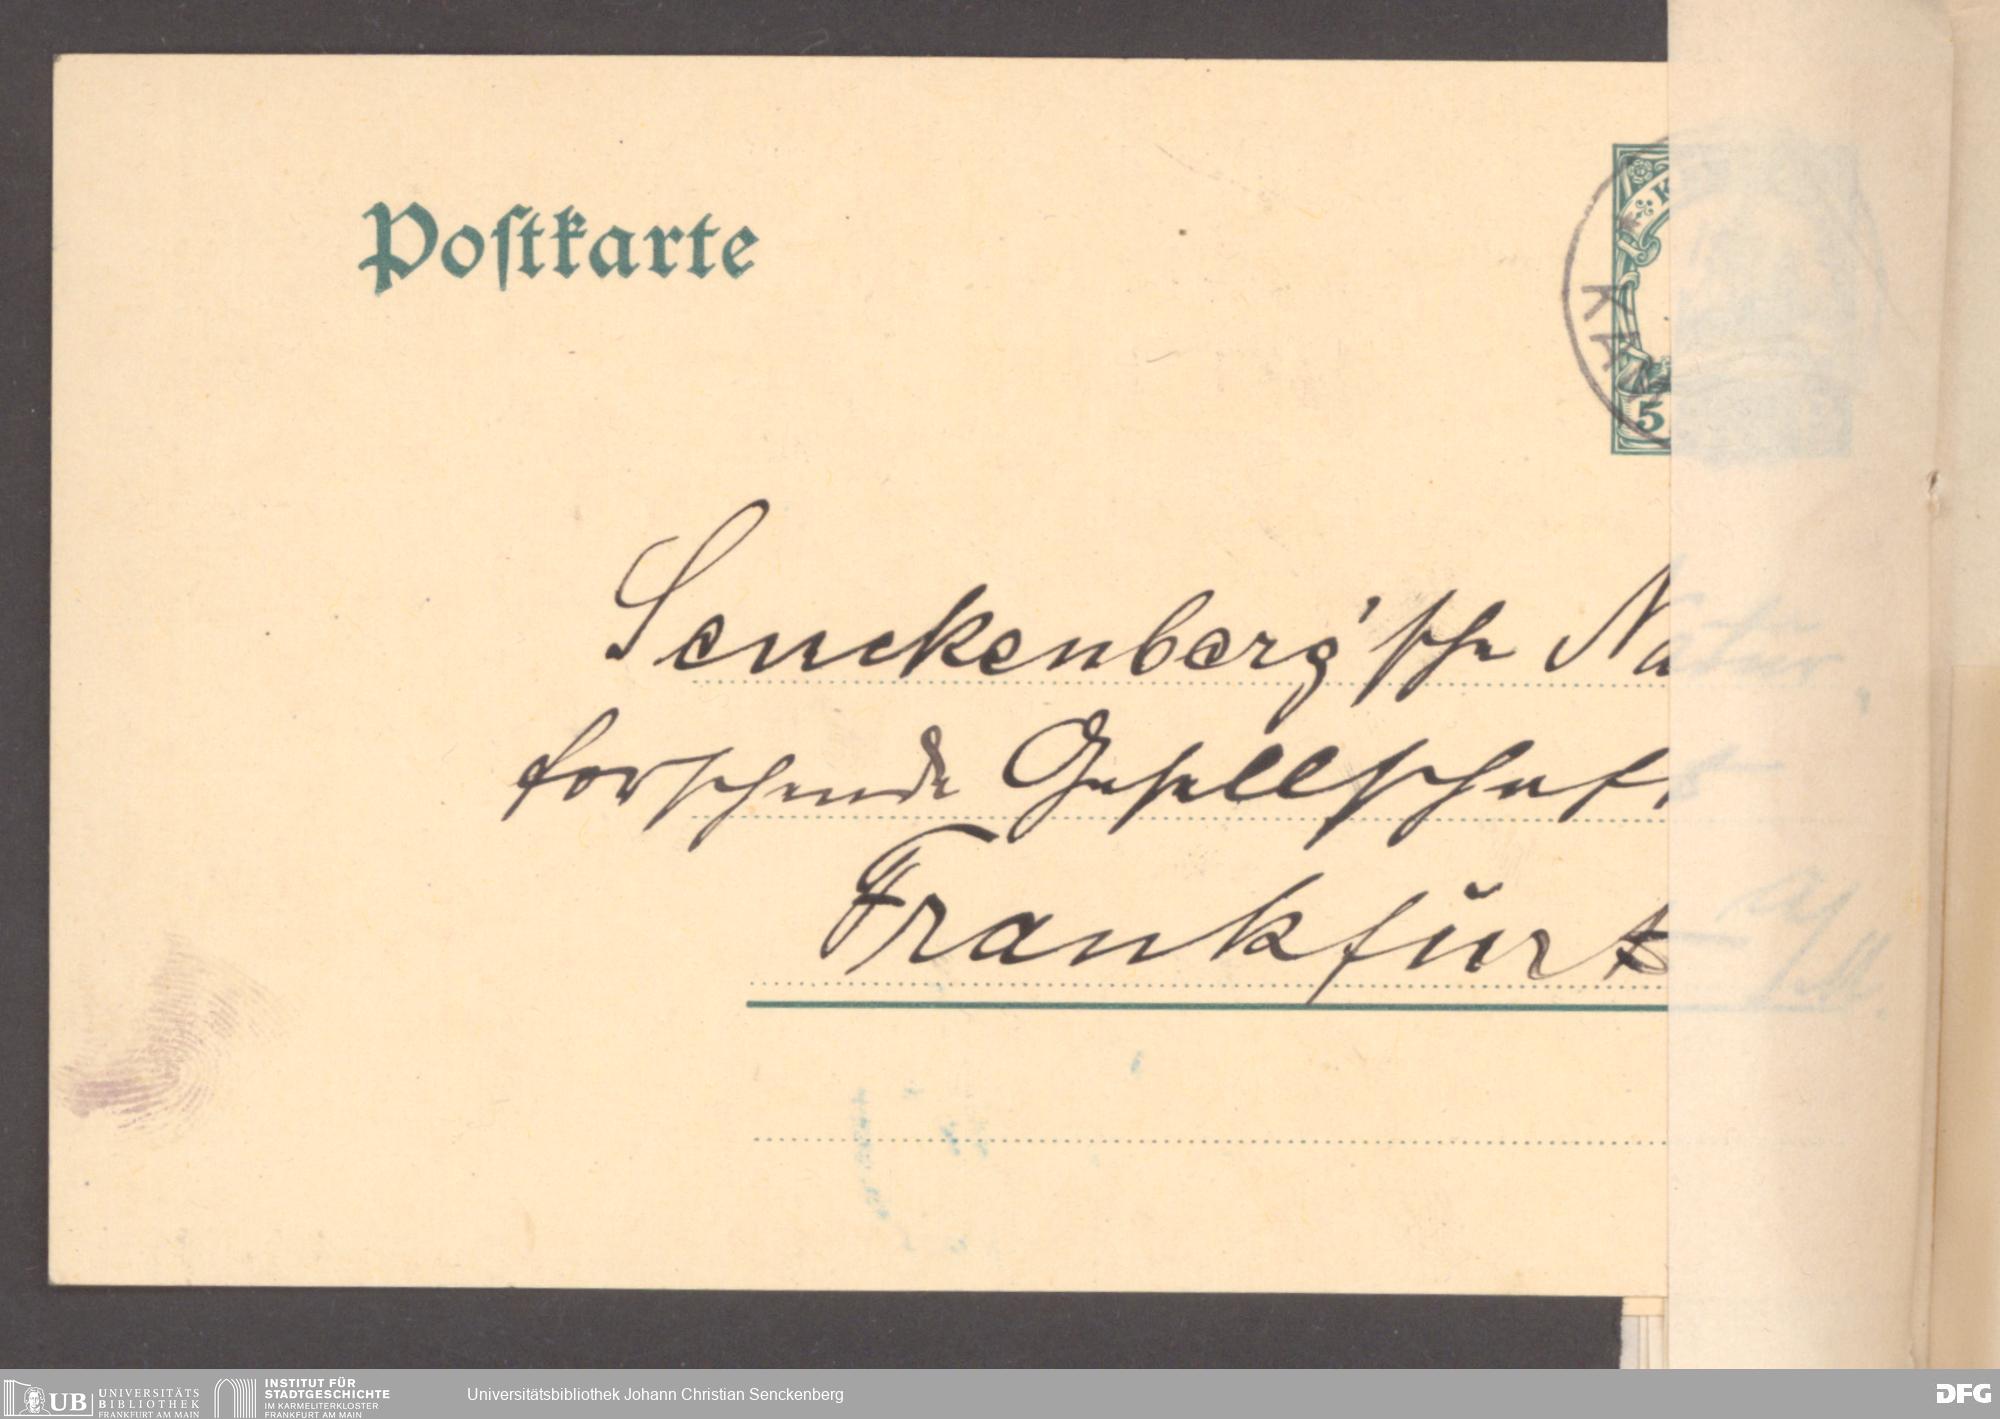 Postkarte
K
KA
5
Senckenberg'sche Natur,
forschende Gesellschaft
Frankfurt a/M.
UB UNIVERSITÄTS BIBLIOTHEK FRANKFURT AM MAIN
INSTITUT FÜR STADTGESCHICHTE IM KARMELITERKLOSTER FRANKFURT AM MAIN
Universitätsbibliothek Johann Christian Senckenberg
DFG